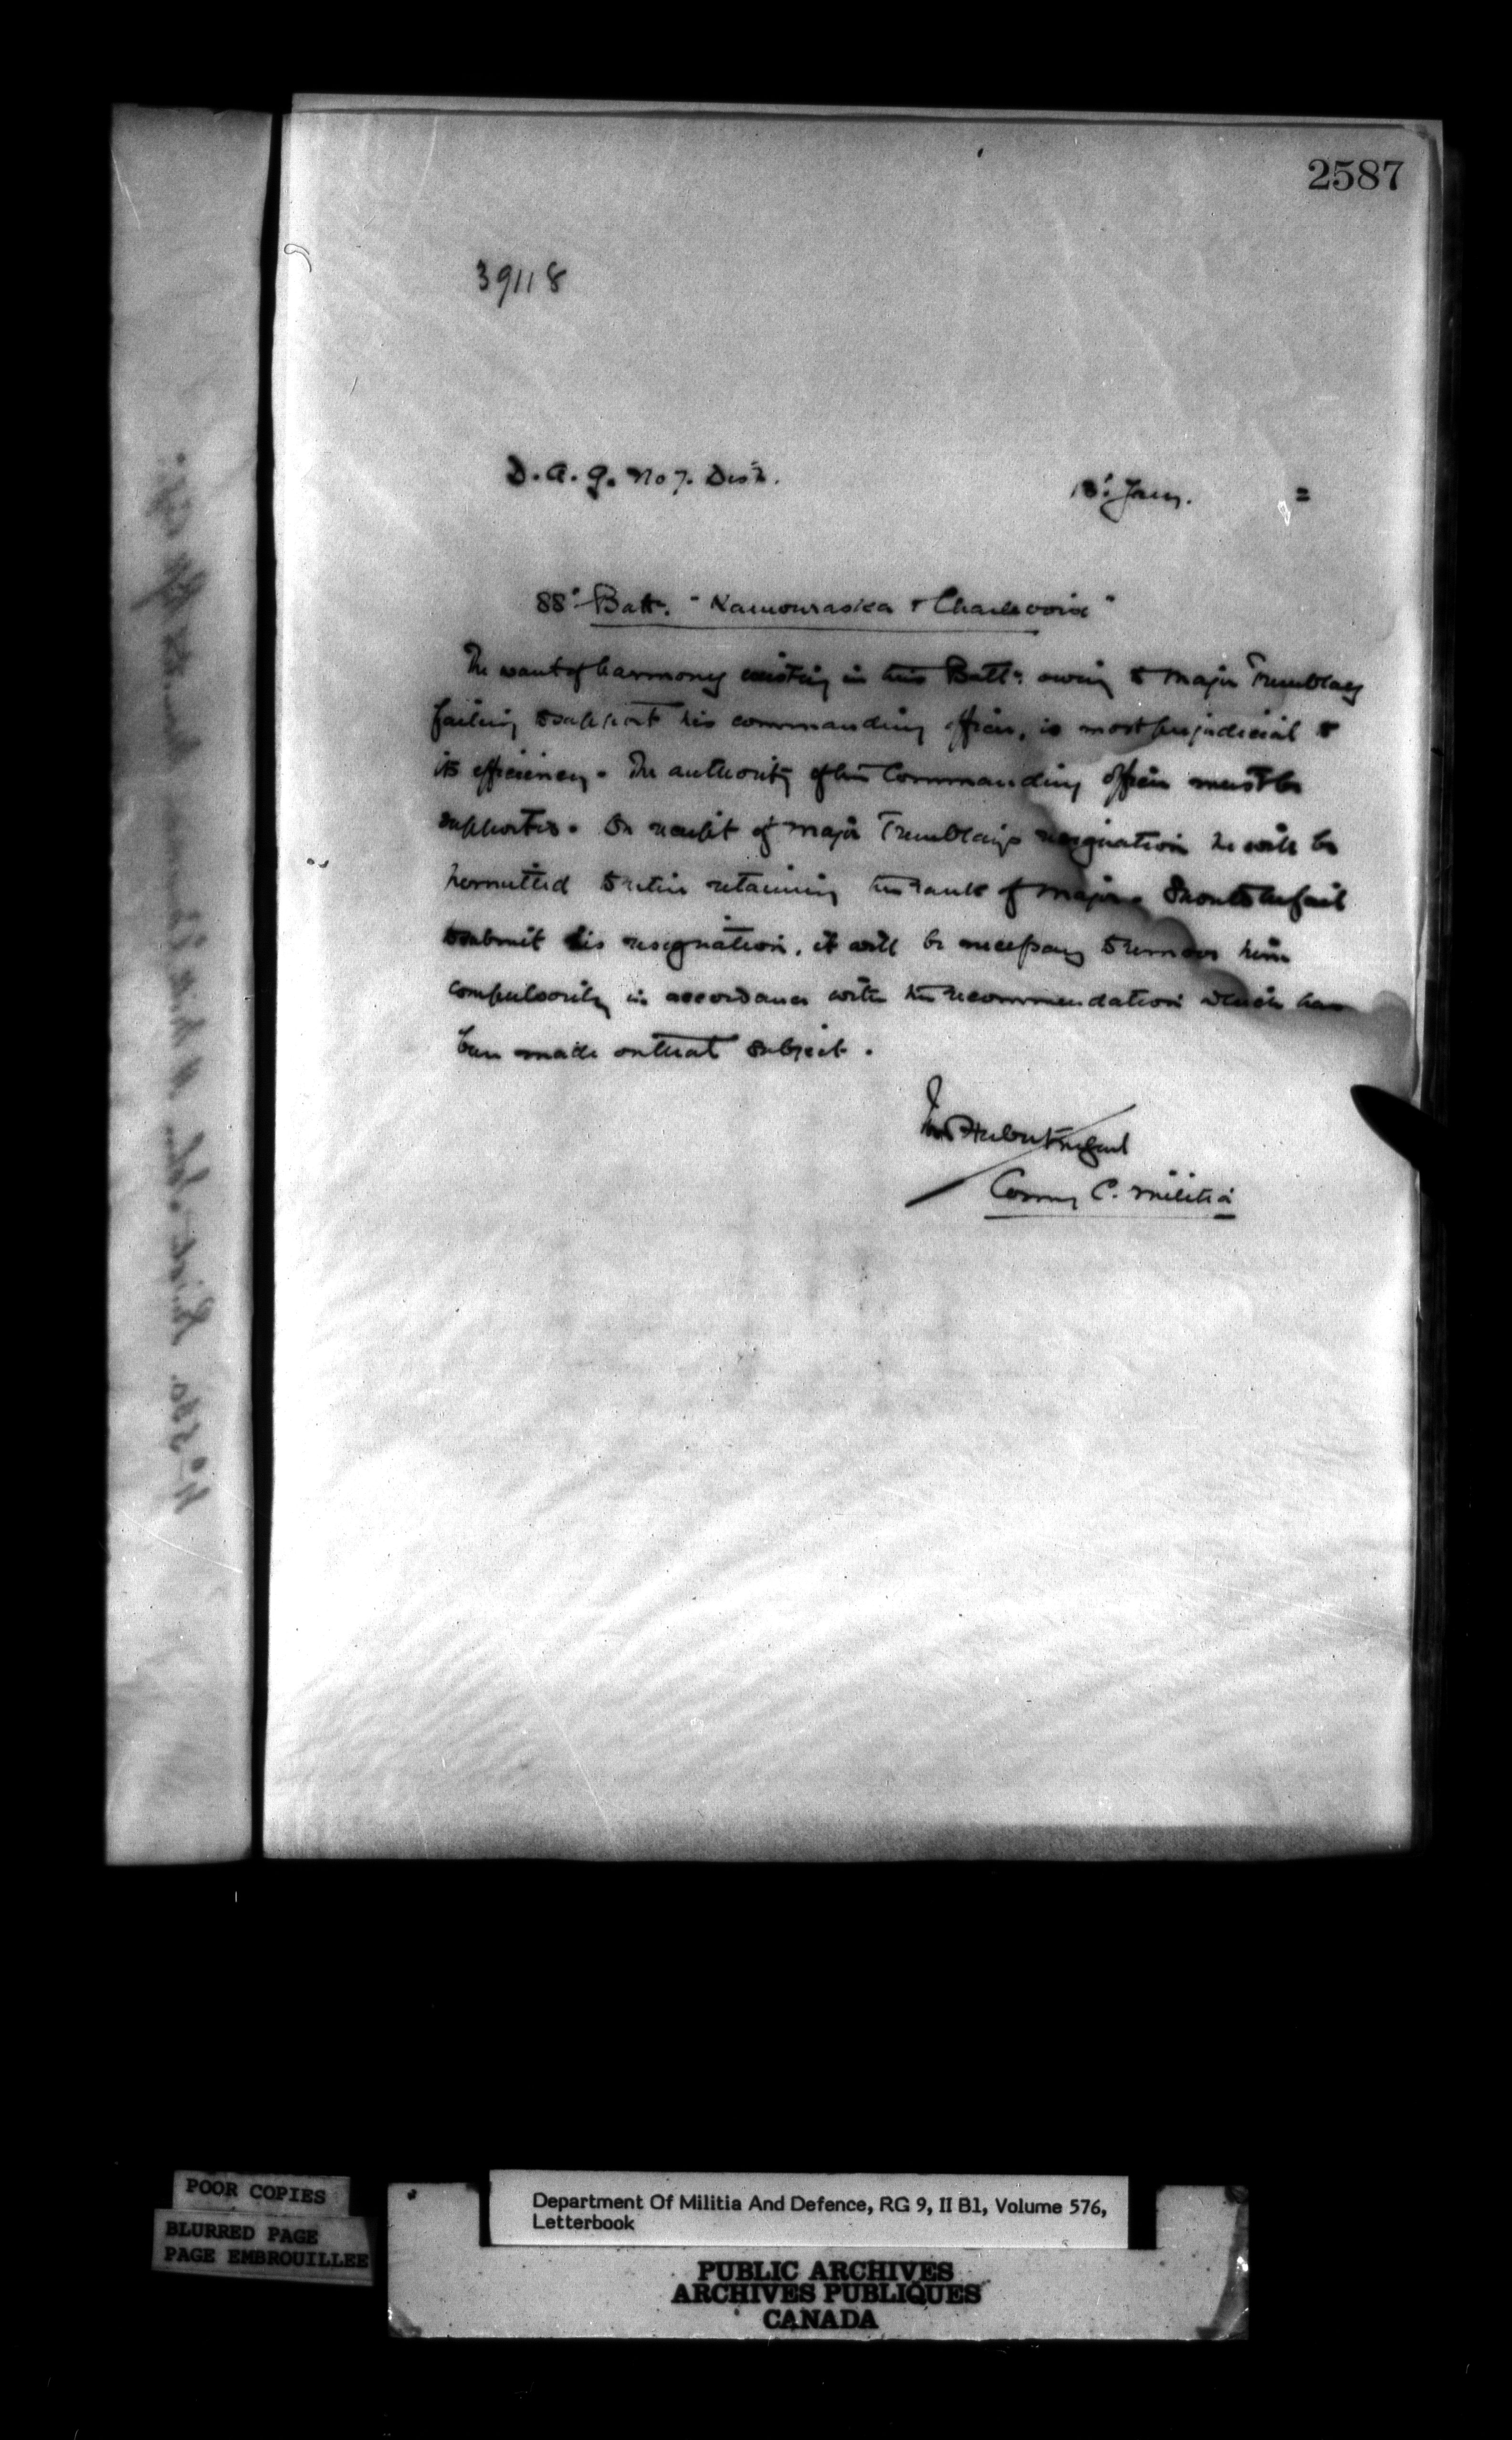 2587
39118
D. A. G. No 7. Dist.
18' Jany. =
88' Batt. "Kamouraska & Charlevoix"
The want of harmony existing in this Battn: owing to Major Tremblay
failing to support his commanding officer, is most prejudicial to
its efficiency. The authority of the Commanding officer must be
supported. On receipt of Major Tremblay's resignation he will be
permitted to retire retaining the rank of Major. Should he fail
to submit his resignation, it will be necessary to remove him
compulsorily in accordance with the recommendation which has
been made on that subject.
Ivor Herbert
Comg C. Militia
POOR COPIES
BLURRED PAGE
PAGE EMBROUILLEE
Department Of Militia And Defence, RG 9, II B1, Volume 576,
Letterbook
PUBLIC ARCHIVES
ARCHIVES PUBLIQUES
CANADA